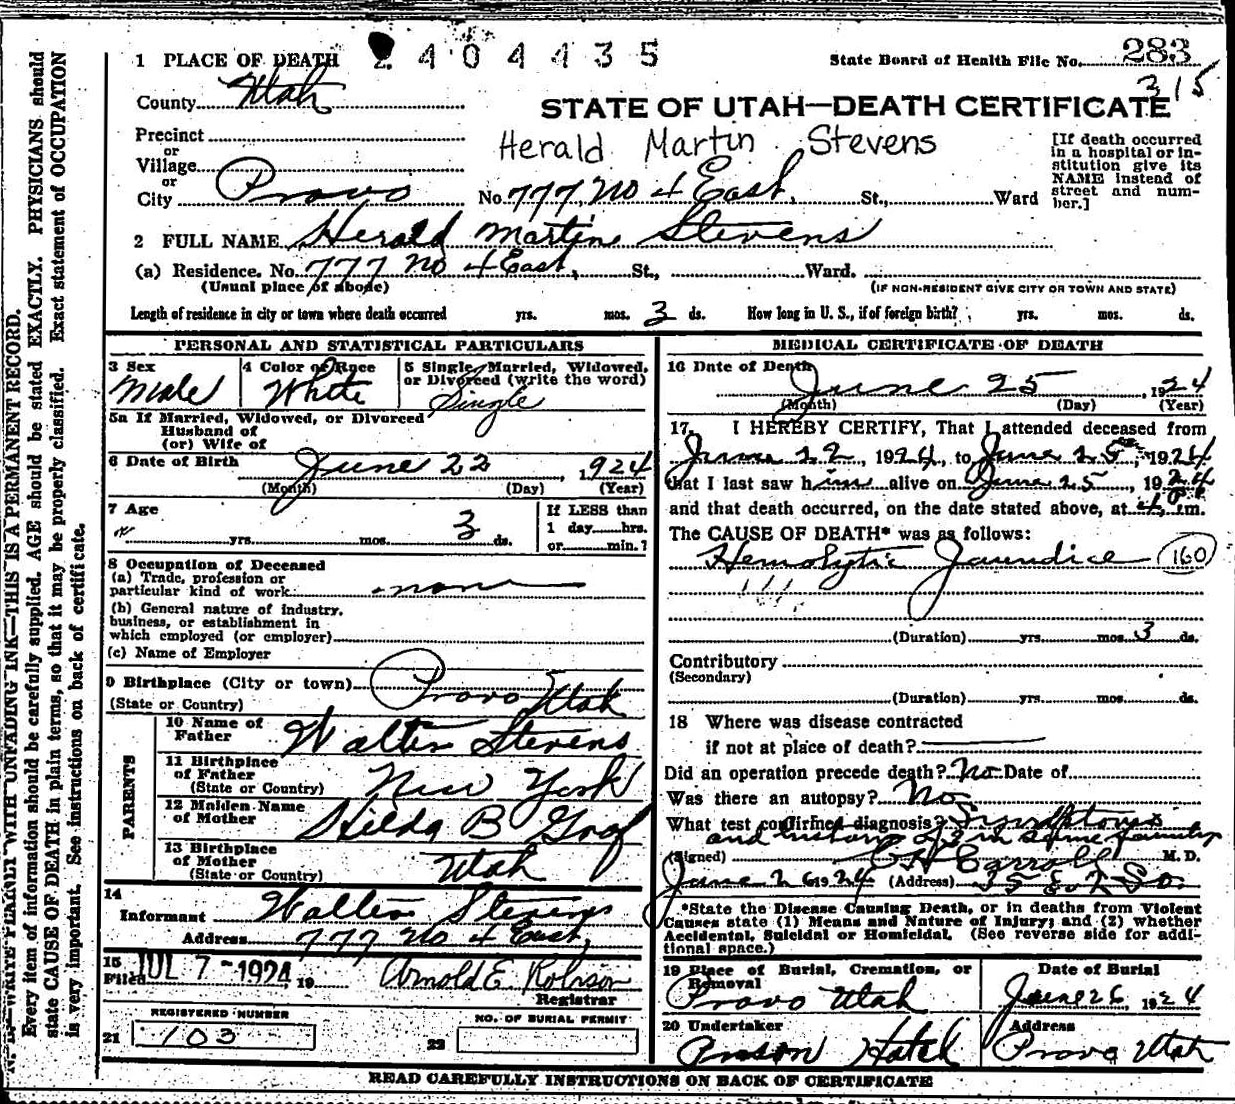 2404435
State Board of Health File No. 283
315
1 PLACE OF DEATH
County Utah
STATE OF UTAH—DEATH CERTIFICATE
Precinct
or
Village
or
City Provo
Herald Martin Stevens
No. 777, No 4 East, St., Ward
[If death occurred
in a hospital or in-
stitution give its
NAME instead of
street and num-
ber.]
2 FULL NAME Herald Martin Stevens
(a) Residence. No. 777 No 4 East, St., Ward.
(Usual place of abode)
(IF NON-RESIDENT GIVE CITY OR TOWN AND STATE)
Length of residence in city or town where death occurred yrs. mos. 3 ds. How long in U. S., if of foreign birth? yrs. mos. ds.
PERSONAL AND STATISTICAL PARTICULARS
3 Sex
Male
4 Color or Race
White
5 Single, Married, Widowed,
or Divorced (write the word)
Single
5a If Married, Widowed, or Divorced
Husband of
(or) Wife of
6 Date of Birth June 22, 1924
(Month) (Day) (Year)
7 Age
yrs. mos. 3 ds.
If LESS than
1 day hrs.
or min.?
8 Occupation of Deceased
(a) Trade, profession or
particular kind of work none
(b) General nature of industry,
business, or establishment in
which employed (or employer)
(c) Name of Employer
9 Birthplace (City or town) Provo Utah
(State or Country)
PARENTS
10 Name of
Father Walter Stevens
11 Birthplace
of Father
(State or Country) New York
12 Maiden Name
of Mother Hilda B Graf
13 Birthplace
of Mother
(State or Country) Utah
14
Informant Walter Stevens
Address 777 No 4 East,
15
Filed JUL 7 - 1924 19 Arnold E. Robison
Registrar
REGISTERED NUMBER
21 103
NO. OF BURIAL PERMIT
22
MEDICAL CERTIFICATE OF DEATH
16 Date of Death
June 25, 1924
(Month) (Day) (Year)
17. I HEREBY CERTIFY, That I attended deceased from
June 22, 1924, to June 25, 1924
that I last saw him alive on June 25, 1924
and that death occurred, on the date stated above, at 4 P.m.
The CAUSE OF DEATH* was as follows:
Hemolytic Jaundice 160
(Duration) yrs. mos. 3 ds.
Contributory
(Secondary)
(Duration) yrs. mos. ds.
18 Where was disease contracted
if not at place of death?
Did an operation precede death? No Date of
Was there an autopsy? No
What test confirmed diagnosis? Symptoms
and history of 2nd same family
(Signed) Carroll M. D.
June 26 1924 (Address) 35 E. 2 So.
*State the Disease Causing Death, or in deaths from Violent
Causes state (1) Means and Nature of Injury; and (2) whether
Accidental, Suicidal or Homicidal. (See reverse side for addi-
tional space.)
19 Place of Burial, Cremation, or
Removal
Provo Utah
Date of Burial
June 26, 1924
20 Undertaker
Hatch
Address
Provo Utah
READ CAREFULLY INSTRUCTIONS ON BACK OF CERTIFICATE
N. B.—WRITE PLAINLY WITH UNFADING INK—THIS IS A PERMANENT RECORD.
Every item of information should be carefully supplied. AGE should be stated EXACTLY. PHYSICIANS should
state CAUSE OF DEATH in plain terms, so that it may be properly classified. Exact statement of OCCUPATION
is very important. See instructions on back of certificate.